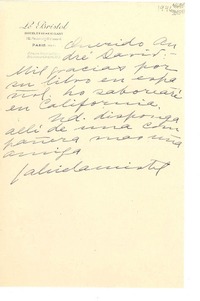 Le Bristol
PARIS
Querido An
dré David:
Mil gracias por
su libro en espa
ñol. Lo saborearé
en California.
Ud. disponga
allí de una com
pañera mas una
amiga